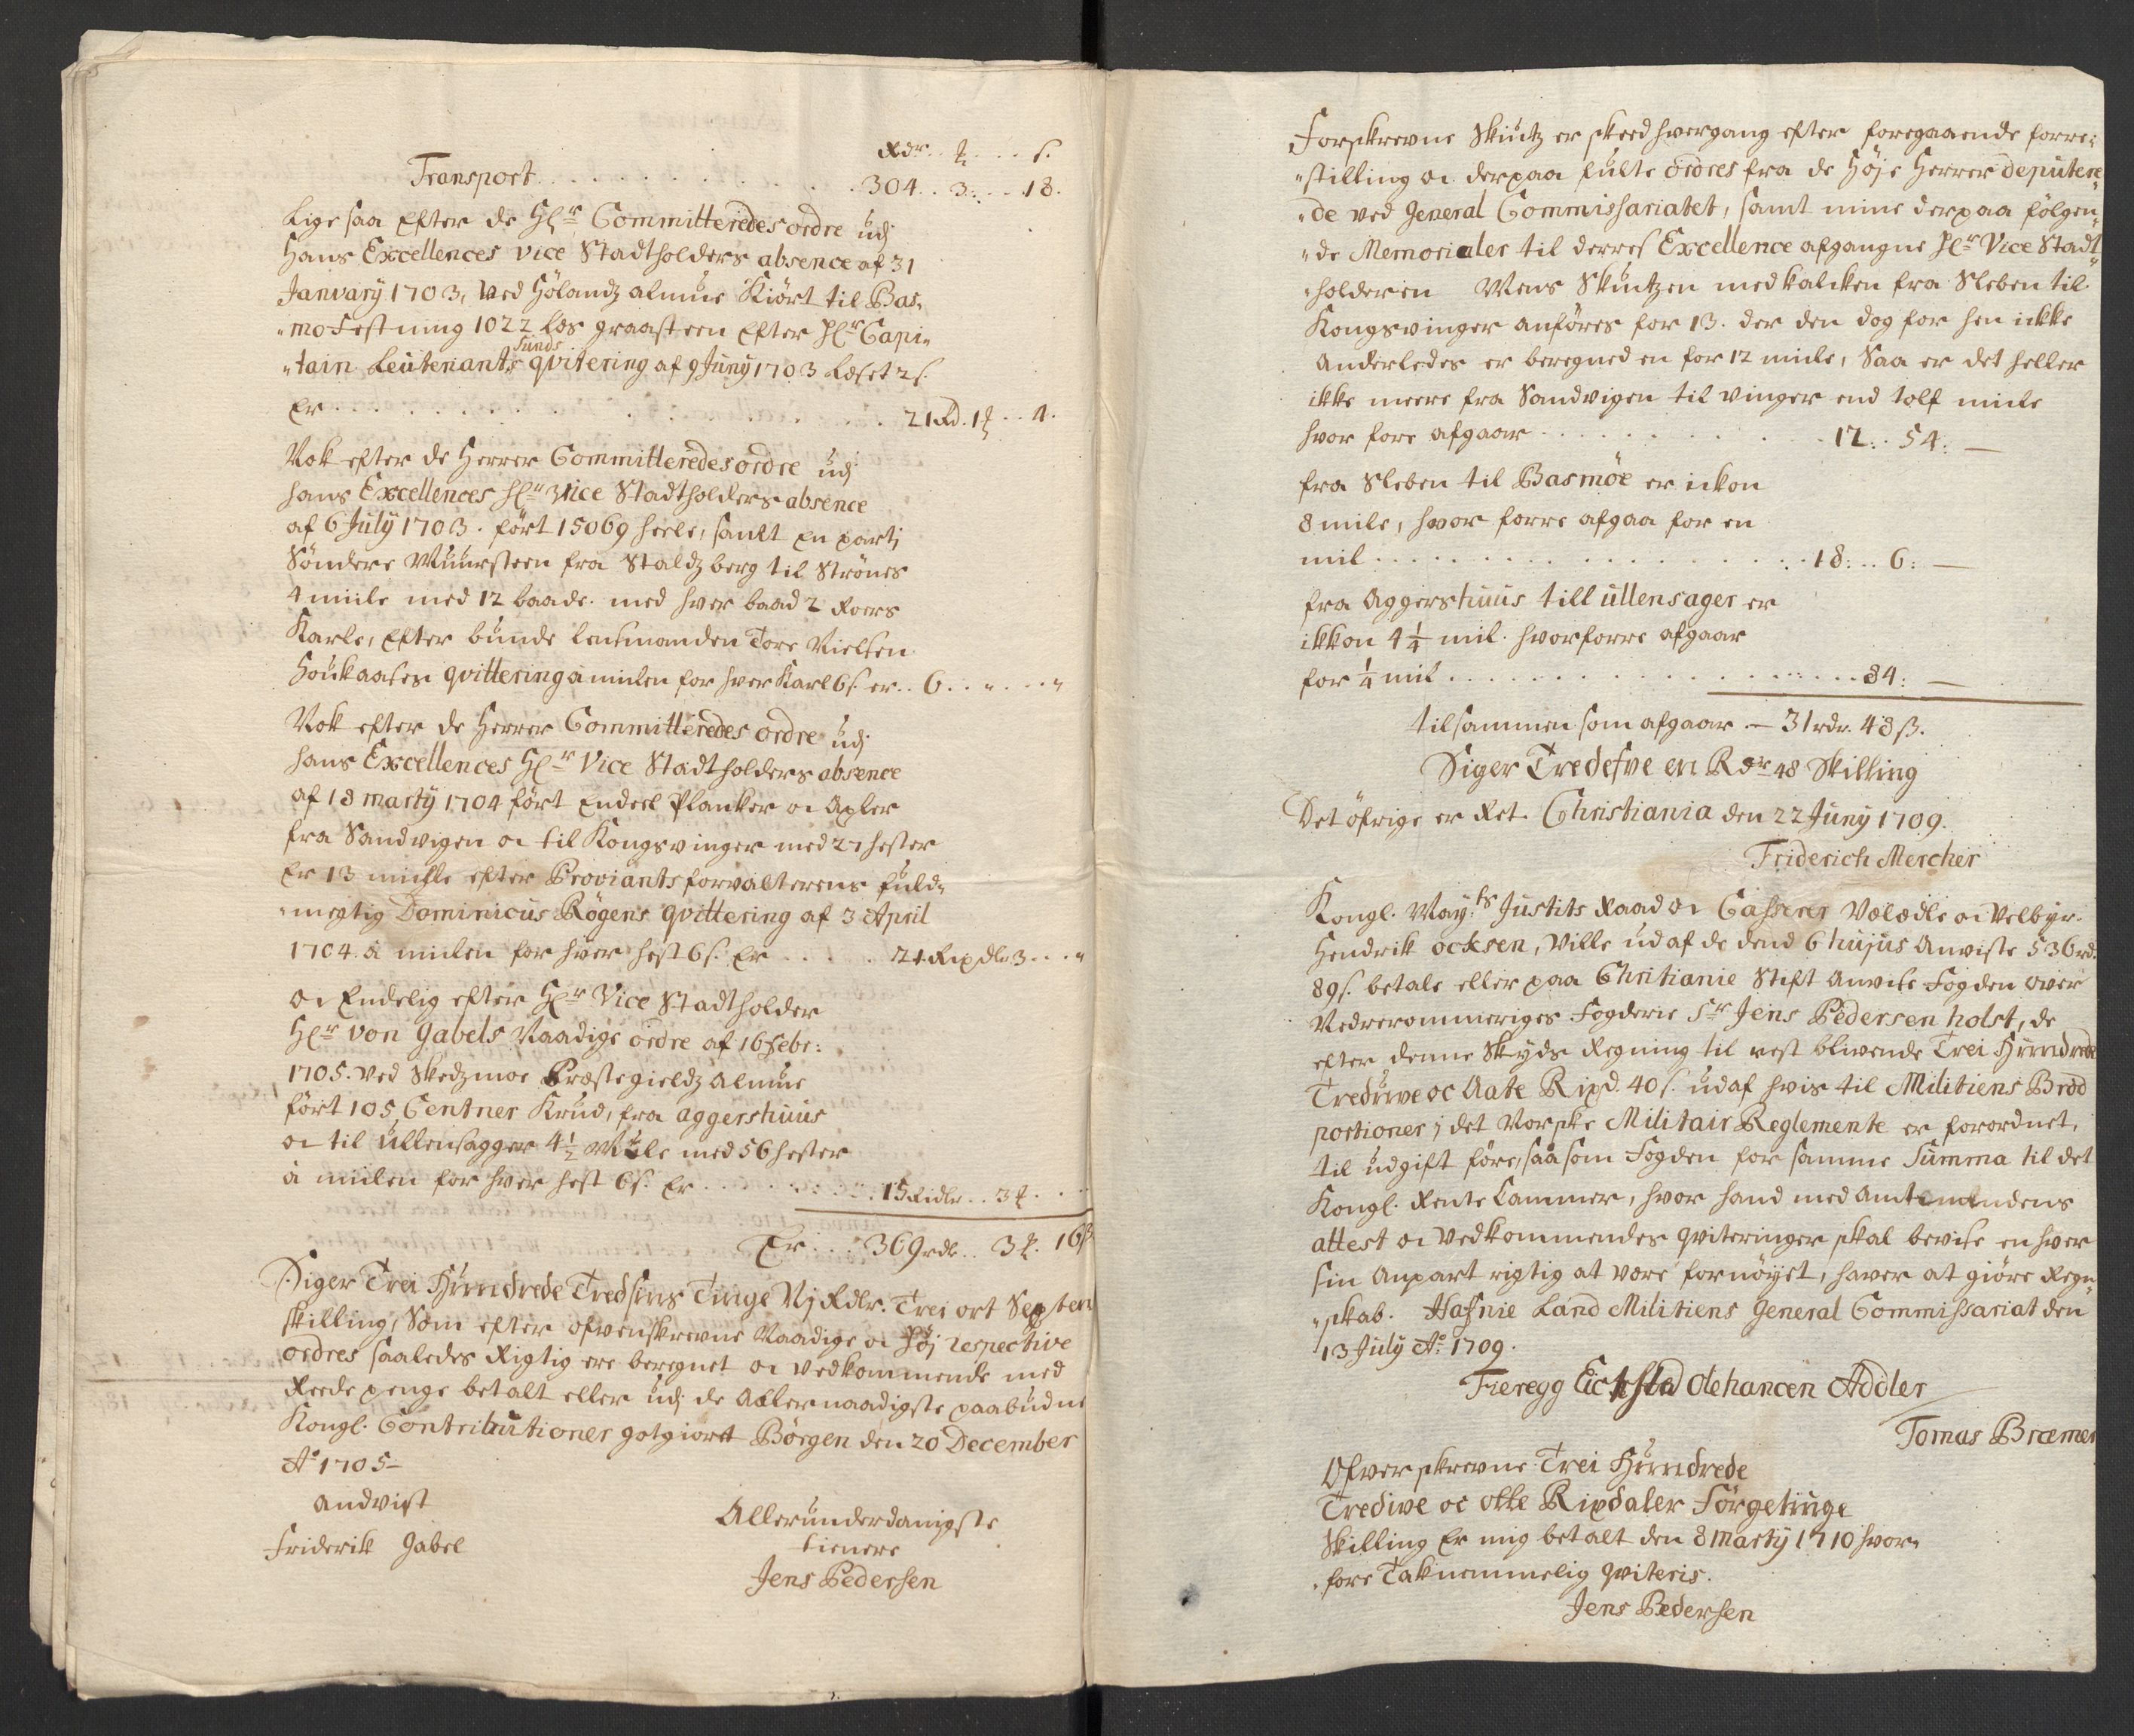 Rdr. ₰ . . . s.
Transport . . . . . . . . . . 304 . . 3: . . 18.
Lige saa Efter de Hl:r Committeredes ordre udj
Hans Excellences vice Stadtholders absence af 31
January 1703, Ved Hölandz almue Kiört til Bas„
„mo Festning 1022 Læs graasteen Efter Hl:r Capi„
„tain Leutenants Funds qvitering af 9 Juny 1703 Læset 2 s.
Er . . . . . . . . . . . . . 21 Rd. 1 ₰ . . 4.
Nok efter de Herrer Committeredes ordre udj
hans Excellences Hl:r Vice Stadtholders absence
af 6 July 1703. fört 15069 heele, samt En partj
Söndere Muursteen fra Staldzberg til Strönes
4 miile med 12 baade. med hver baad 2 Roers
Karle, Efter bunde lensmanden Tore Nielsen
Houkaases qvittering á milen for hver Karl 6 s. er . . 6 . . „ . . . „
Nok efter de Herrer Committeredes ordre udj
hans Excellences Hl:r Vice Stadtholders absence
af 18 marty 1704 fört Endeel Planker oc Axler
fra Sandvigen oc til Kongsvinger med 27 hester
Er 13 miihle efter Proviantsforvalterens fuld„
„megtig Dominicus Rögens qvittering af 3 April
1704. á milen for hver hest 6 s. Er . . . . . 21 Rixdlr 3 . . . „
oc Endelig efter Hl:r Vice Stadtholder
Hl:r von Gabels Naadige ordre af 16 Febr:
1705. ved Skedzmoe Præstegieldz Almue
fört 105 Centner Krud, fra aggershuus
oc til Ullensagger 4½ Miile med 56 hester
á milen for hver hest 6 s. Er . . . . . . . . . . 15 Ridlr . . 3 ₰ . . .
Er . . . 369 rdlr . . 3 ₰. 16 s
Siger Trei Hundrede Tredsins Tinge Nj Rdlr. Trei ort Sexsten
skilling, Som efter ofvenskrevne Naadige oc Höj respective
ordres saaledes Rigtig ere beregnet oc Vedkommende med
Reede penge betalt eller udj de Allernaadigste paabudne
Kongl. Contributioner gotgiort Börgen den 20 December
Ao 1705 –
andvist
Friderik Gabel
Allerunderdanigste
tienere
Jens Pedersen
Forskrevne Skiutz er skeed hvergang efter foregaaende forre„
„stilling oc derpaa fulte ordres fra de Höje Herrer deputere„
„de ved General Commissariatet, samt mine derpaa fölgen„
„de Memorialer til derres Excellence afgangne Hl:r Vice Stadt„
„holderen Mens Skiutzen med kalcken fra Sleben til
Kongsvinger anföres for 13. der den dog for hen ickke
Anderledes er beregned en for 12 miile, Saa er det heller
ikke meere fra Sandvigen til vinger end tolf miile
hvor fore afgaar . . . . . . . . . . . 12: . 54: —
fra Sleben til Basmöe er ickon
8 mile, hvor forre afgaa for en
mil . . . . . . . . . . . . . . . . 18: . . 6: —
fra Aggershuus till ullensager er
ikkon 4¼ mil. hvorforre afgaar
for ¼ mil . . . . . . . . . . . . . . . . . 84: —
tilsammen som afgaar — 31 rdr. 48 ß.
Siger Tredefve en Rdr 48 Skilling
Det öfrige er Ret. Christiania den 22 Juny 1709.
Friderich Mercher
Kongl. May:ts Justits Raad oc Casserer Vælædle oc Velbyr.
Hendrik ocksen, Ville ud af de dend 6 hujus Anviste 536 rd.
89 s. betale eller paa Christianie Stift Anvise Fogden over
Nedreromeriges Fogderie Sr Jens Pedersen holst, de
efter denne Skyds Regning til rest blivende Trei Hundrede
Tredurve oc Aate Rixd. 40 s. ud af hvis til Militiens Brød
portioner j det Norske Militair Reglemente er forordnet,
til udgift före, saasom Fogden for samme Summa til det
Kongl. Rente Cammer, hvor hand med Amtmandens
attest oc Vedkommendes qviteringer skal bevise en hver
sin Anpart rigtig at være fornöyet, haver at giöre Regn„
„skab. Hafnie Land Militiens General Commissariat den
13 July Ao 1709.
Fieregg Eichsted Olehancen Addler
Tomas Bræmer
Ofver skrevne Trei Hundrede
Tredive oc otte Rixdaler Förgetinge
Skilling Er mig betalt den 8 Marty 1710 hvor„
„fore Taknemmelig qviteris.
Jens Pedersen